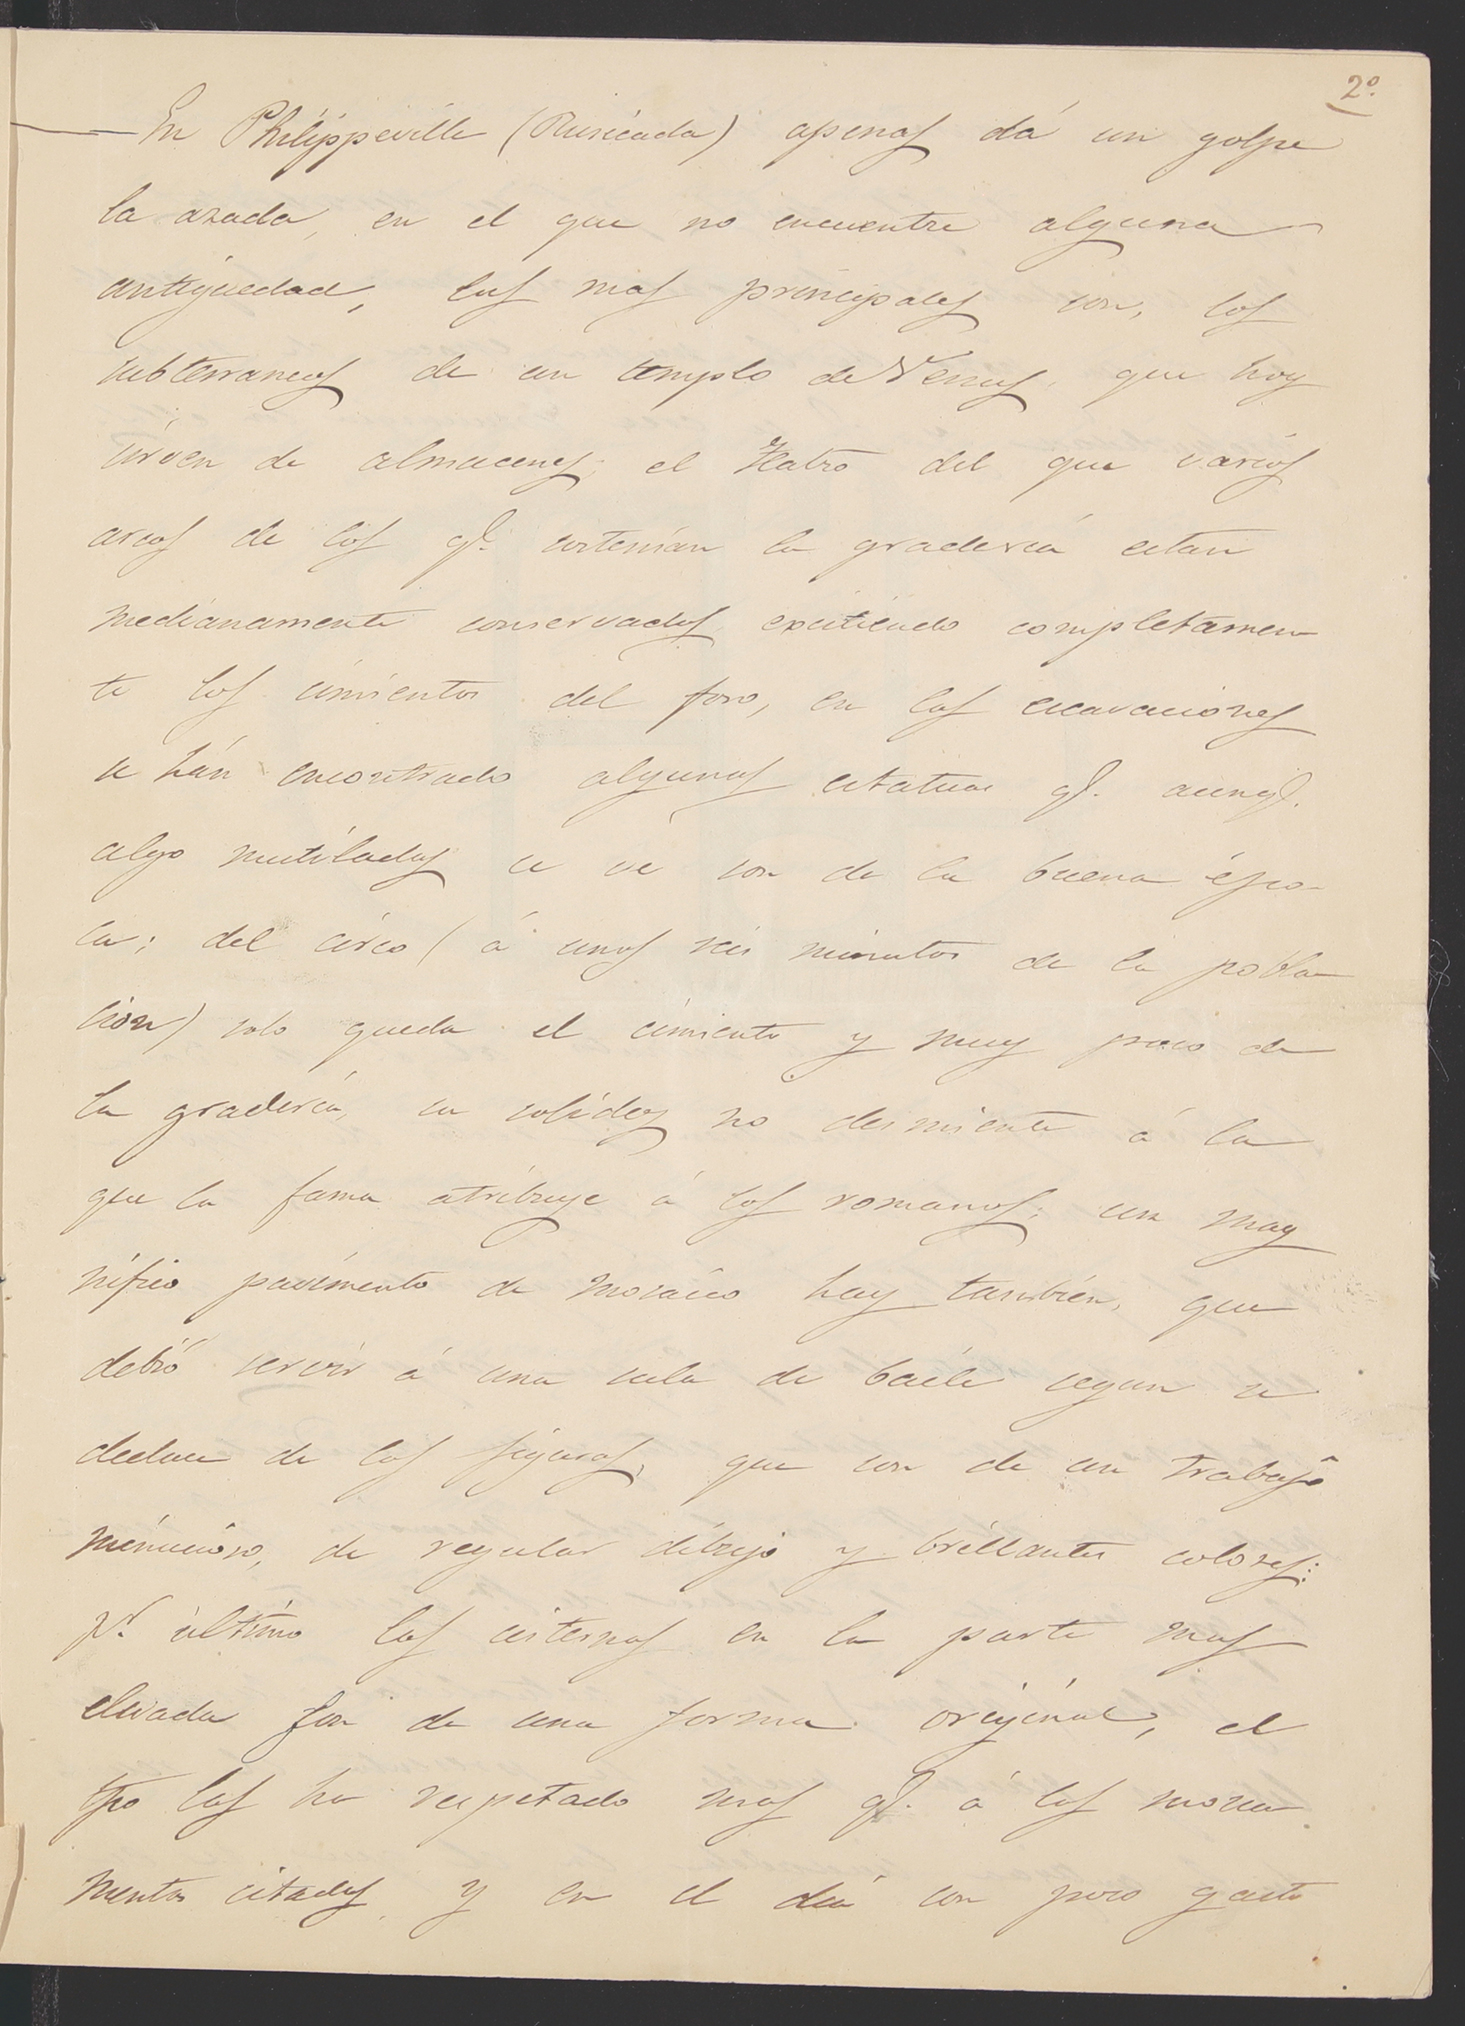 2º
En Philippeville (Rusicada) apenas dá un golpe
la azada, en el que no encuentre alguna
antiguedad, las mas principales son, los
subterraneos de un templo de Venus, que hoy
sirven de almacenes, el teatro del que varios
arcos de los q.e sostenian la gradería estan
medianamente conservados existiendo completamen
te los cimientos del foro, en las excavaciones
se hán encontrado algunas estatuas q.e aunq.e
algo mutiladas se vé son de la buena épo
ca; del circo (á unos seis minutos de la pobla
cion) solo queda el cimiento y muy poco de
la gradería, su solidez no desmiente á la
que la fama atribuye á los romanos; un mag
nifico pavimento de mosaico hay también, que
debió servir á una sala de baile segun se
deduce de las figuras, que son de un trabajo
minucioso, de regular dibujo y brillantes colores:
p.r último las cisternas en la parte mas
elevada son de una forma original, el
tpo las ha respetado mas q.e á los monu
mentos citados y en el dia con poco gasto